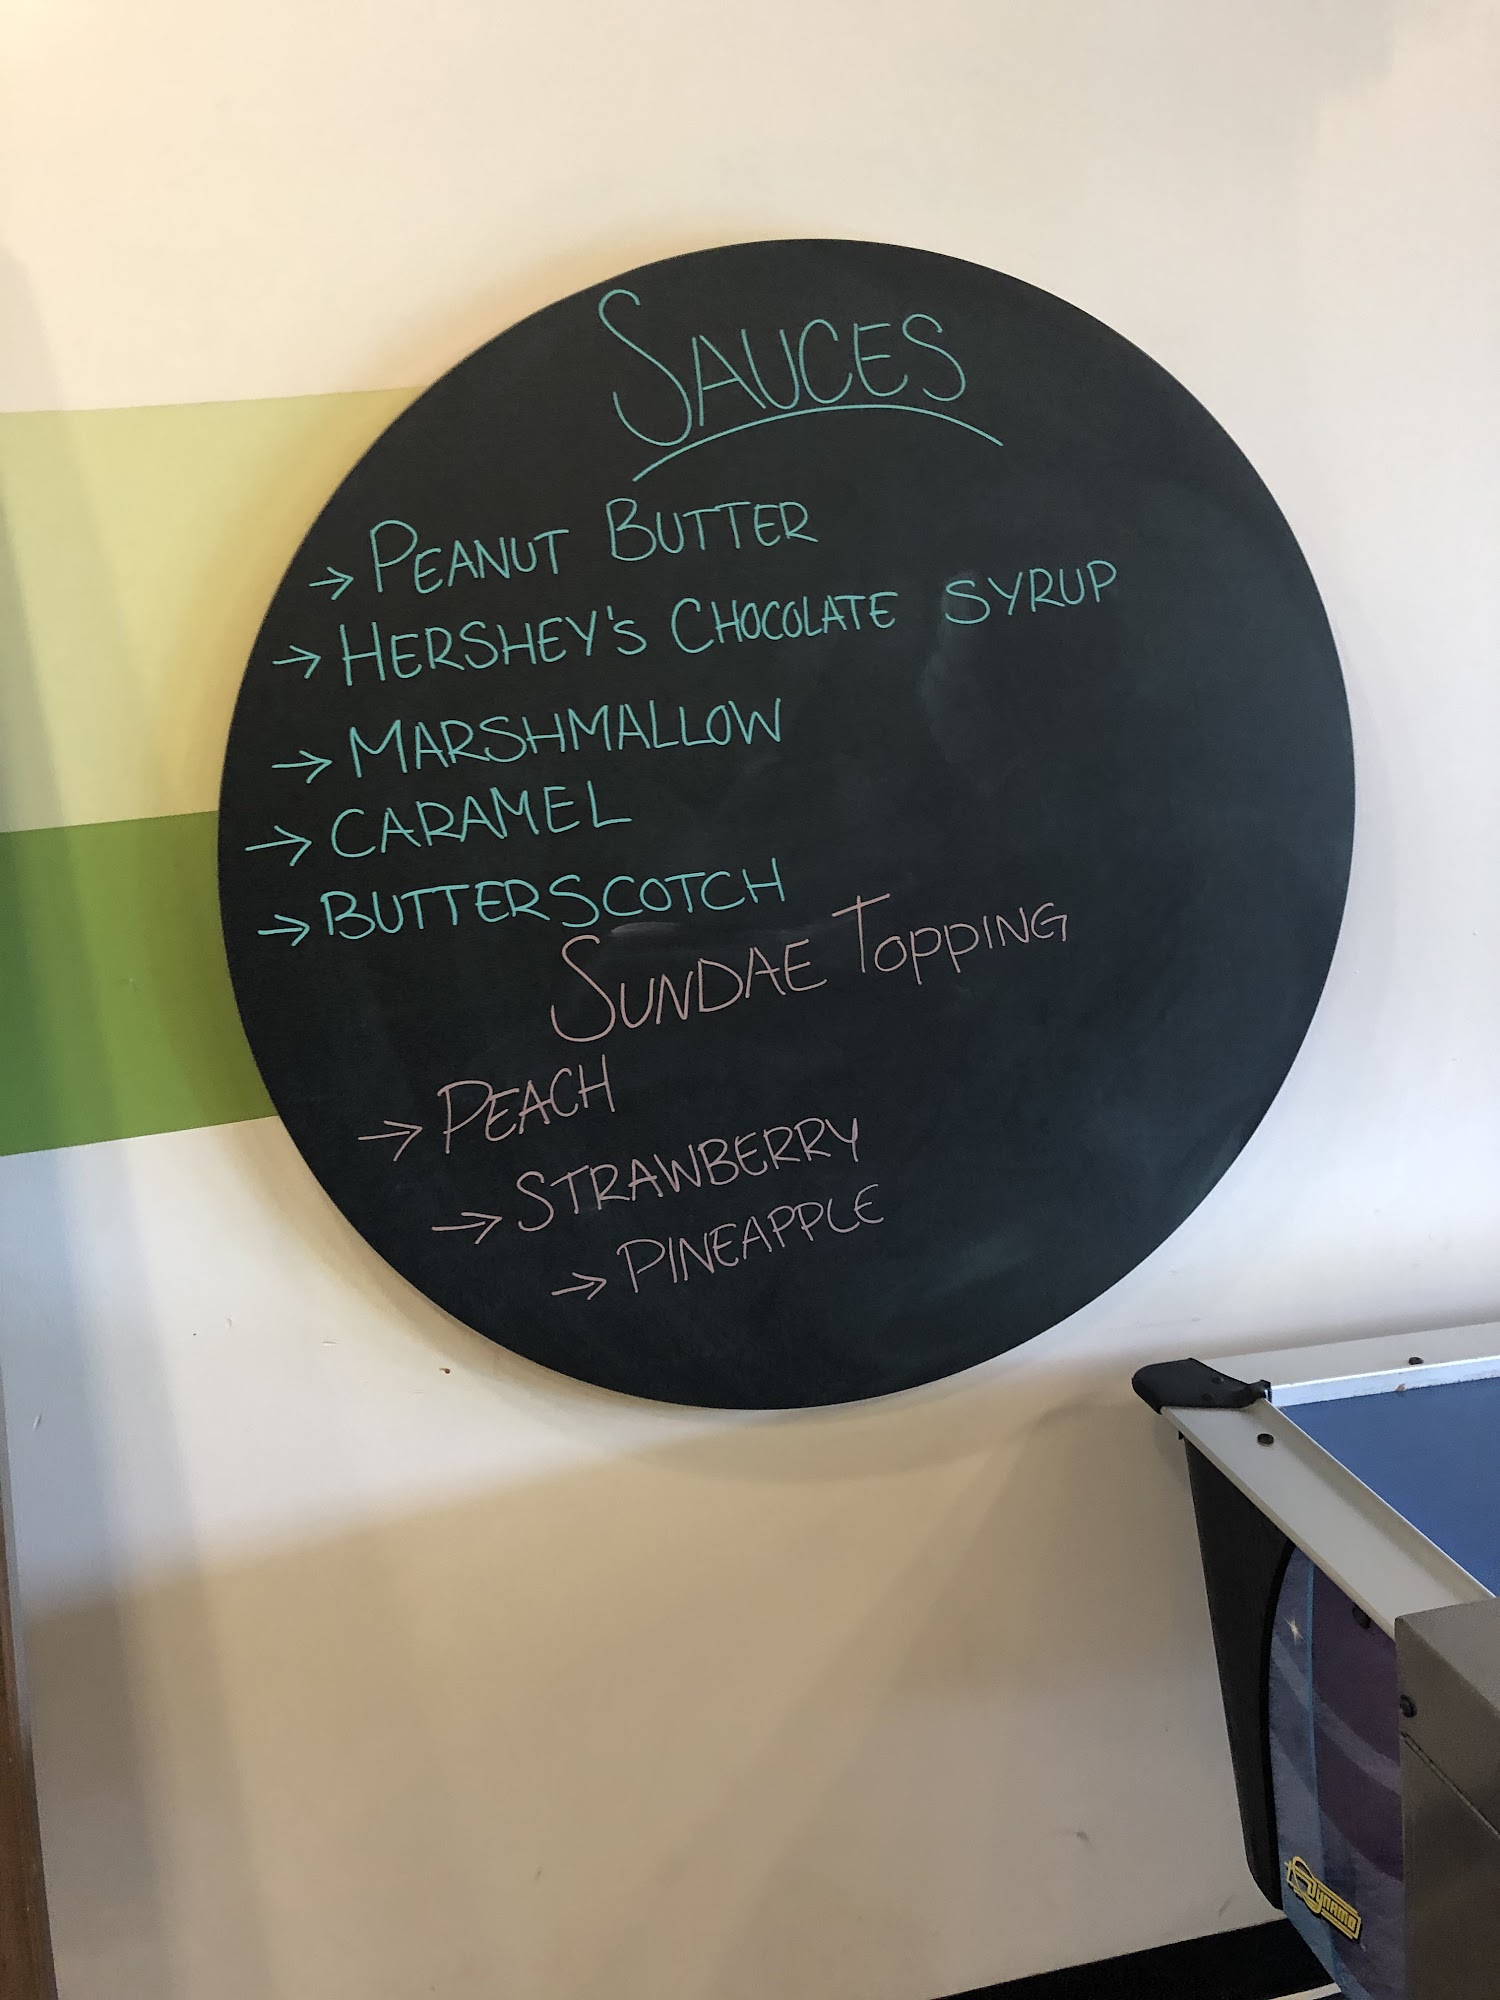 SAUCES
→ PEANUT BUTTER
→ HERSHEY'S CHOCOLATE SYRUP
→ MARSHMALLOW
→ CARAMEL
→ BUTTERSCOTCH
SUNDAE TOPPING
→ PEACH
→ STRAWBERRY
→ PINEAPPLE
DYNAMO